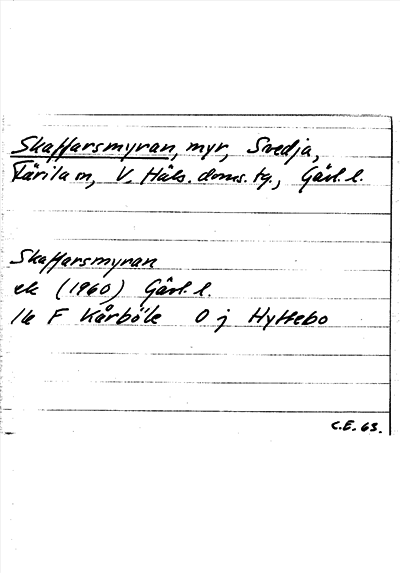 Skaffarsmyran, myr, Svedja,
Färila sn, V. Häls. doms. tg., Gävl. l.
Skaffarsmyran
ek (1960) Gävl. l.
16 F Kårböle 0 j Hyttebo
C.E. 63.